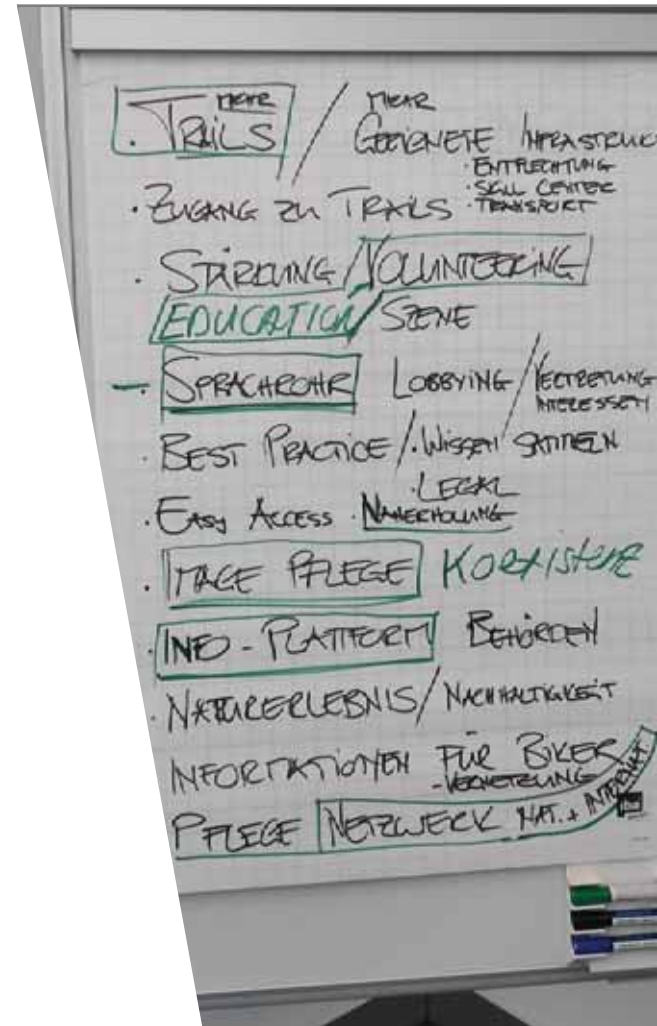 MEHR MEHR
· TRAILS / GEEIGNETE INFRASTRUK
· ENTFLECHTUNG
· SKILL CENTER
· ZUGANG ZU TRAILS · TRANSPORT
· STÄRKUNG / VOLUNTEERING
EDUCATION / SZENE
· SPRACHROHR LOBBYING / VERTRETUNG
INTERESSEN
· BEST PRACTICE / · WISSEN SAMMELN
· LEGAL
· EASY ACCESS · NAHERHOLUNG
· IMAGE PFLEGE KOEXISTENZ
· INFO - PLATTFORM BEHÖRDEN
· NATURERLEBNIS / NACHHALTIGKEIT
INFORMATIONEN FÜR BIKER
- VERNETZUNG
PFLEGE NETZWERK NAT. + INTERNAT